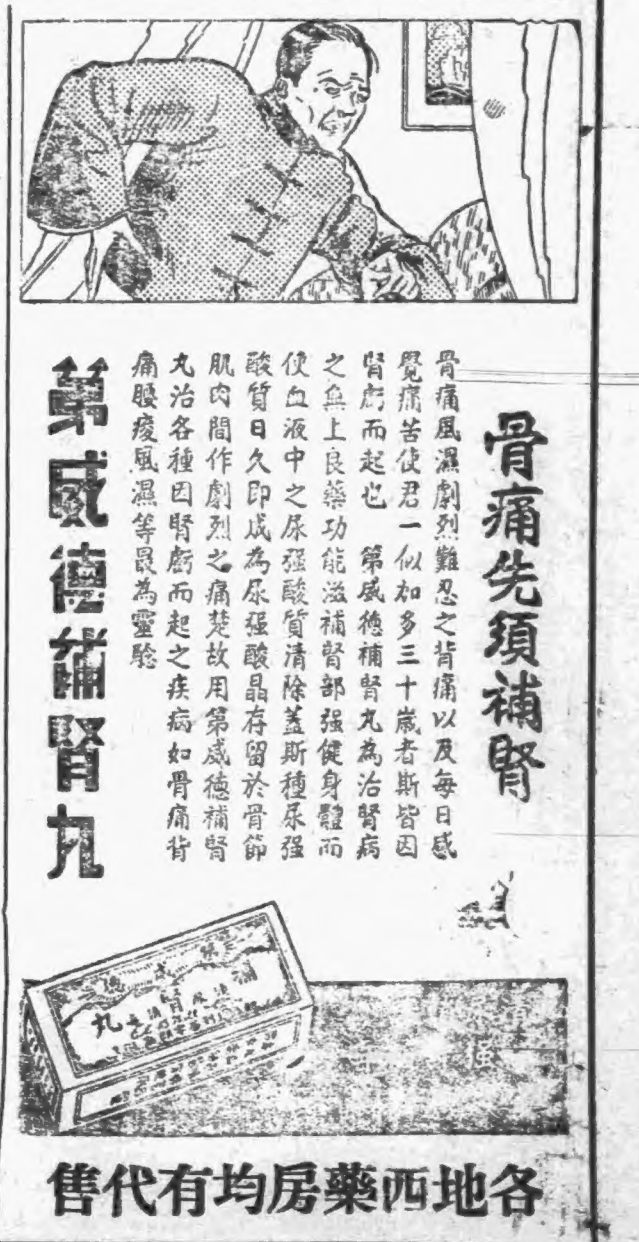 骨痛先須補腎
骨痛風濕劇烈難忍之背痛以及每日感
覺痛苦使君一似加多三十歲者斯皆因
腎虧而起也　第威德補腎丸為治腎病
之無上良藥功能滋補腎部强健身體而
使血液中之尿强酸質清除蓋斯種尿强
酸質日久即成為尿强酸晶存留於骨節
肌肉間作劇烈之痛楚故用第威德補腎
丸治各種因腎虧而起之疾病如骨痛背
痛腰痠風濕等最為靈驗
第威德補腎丸
各地西藥房均有代售